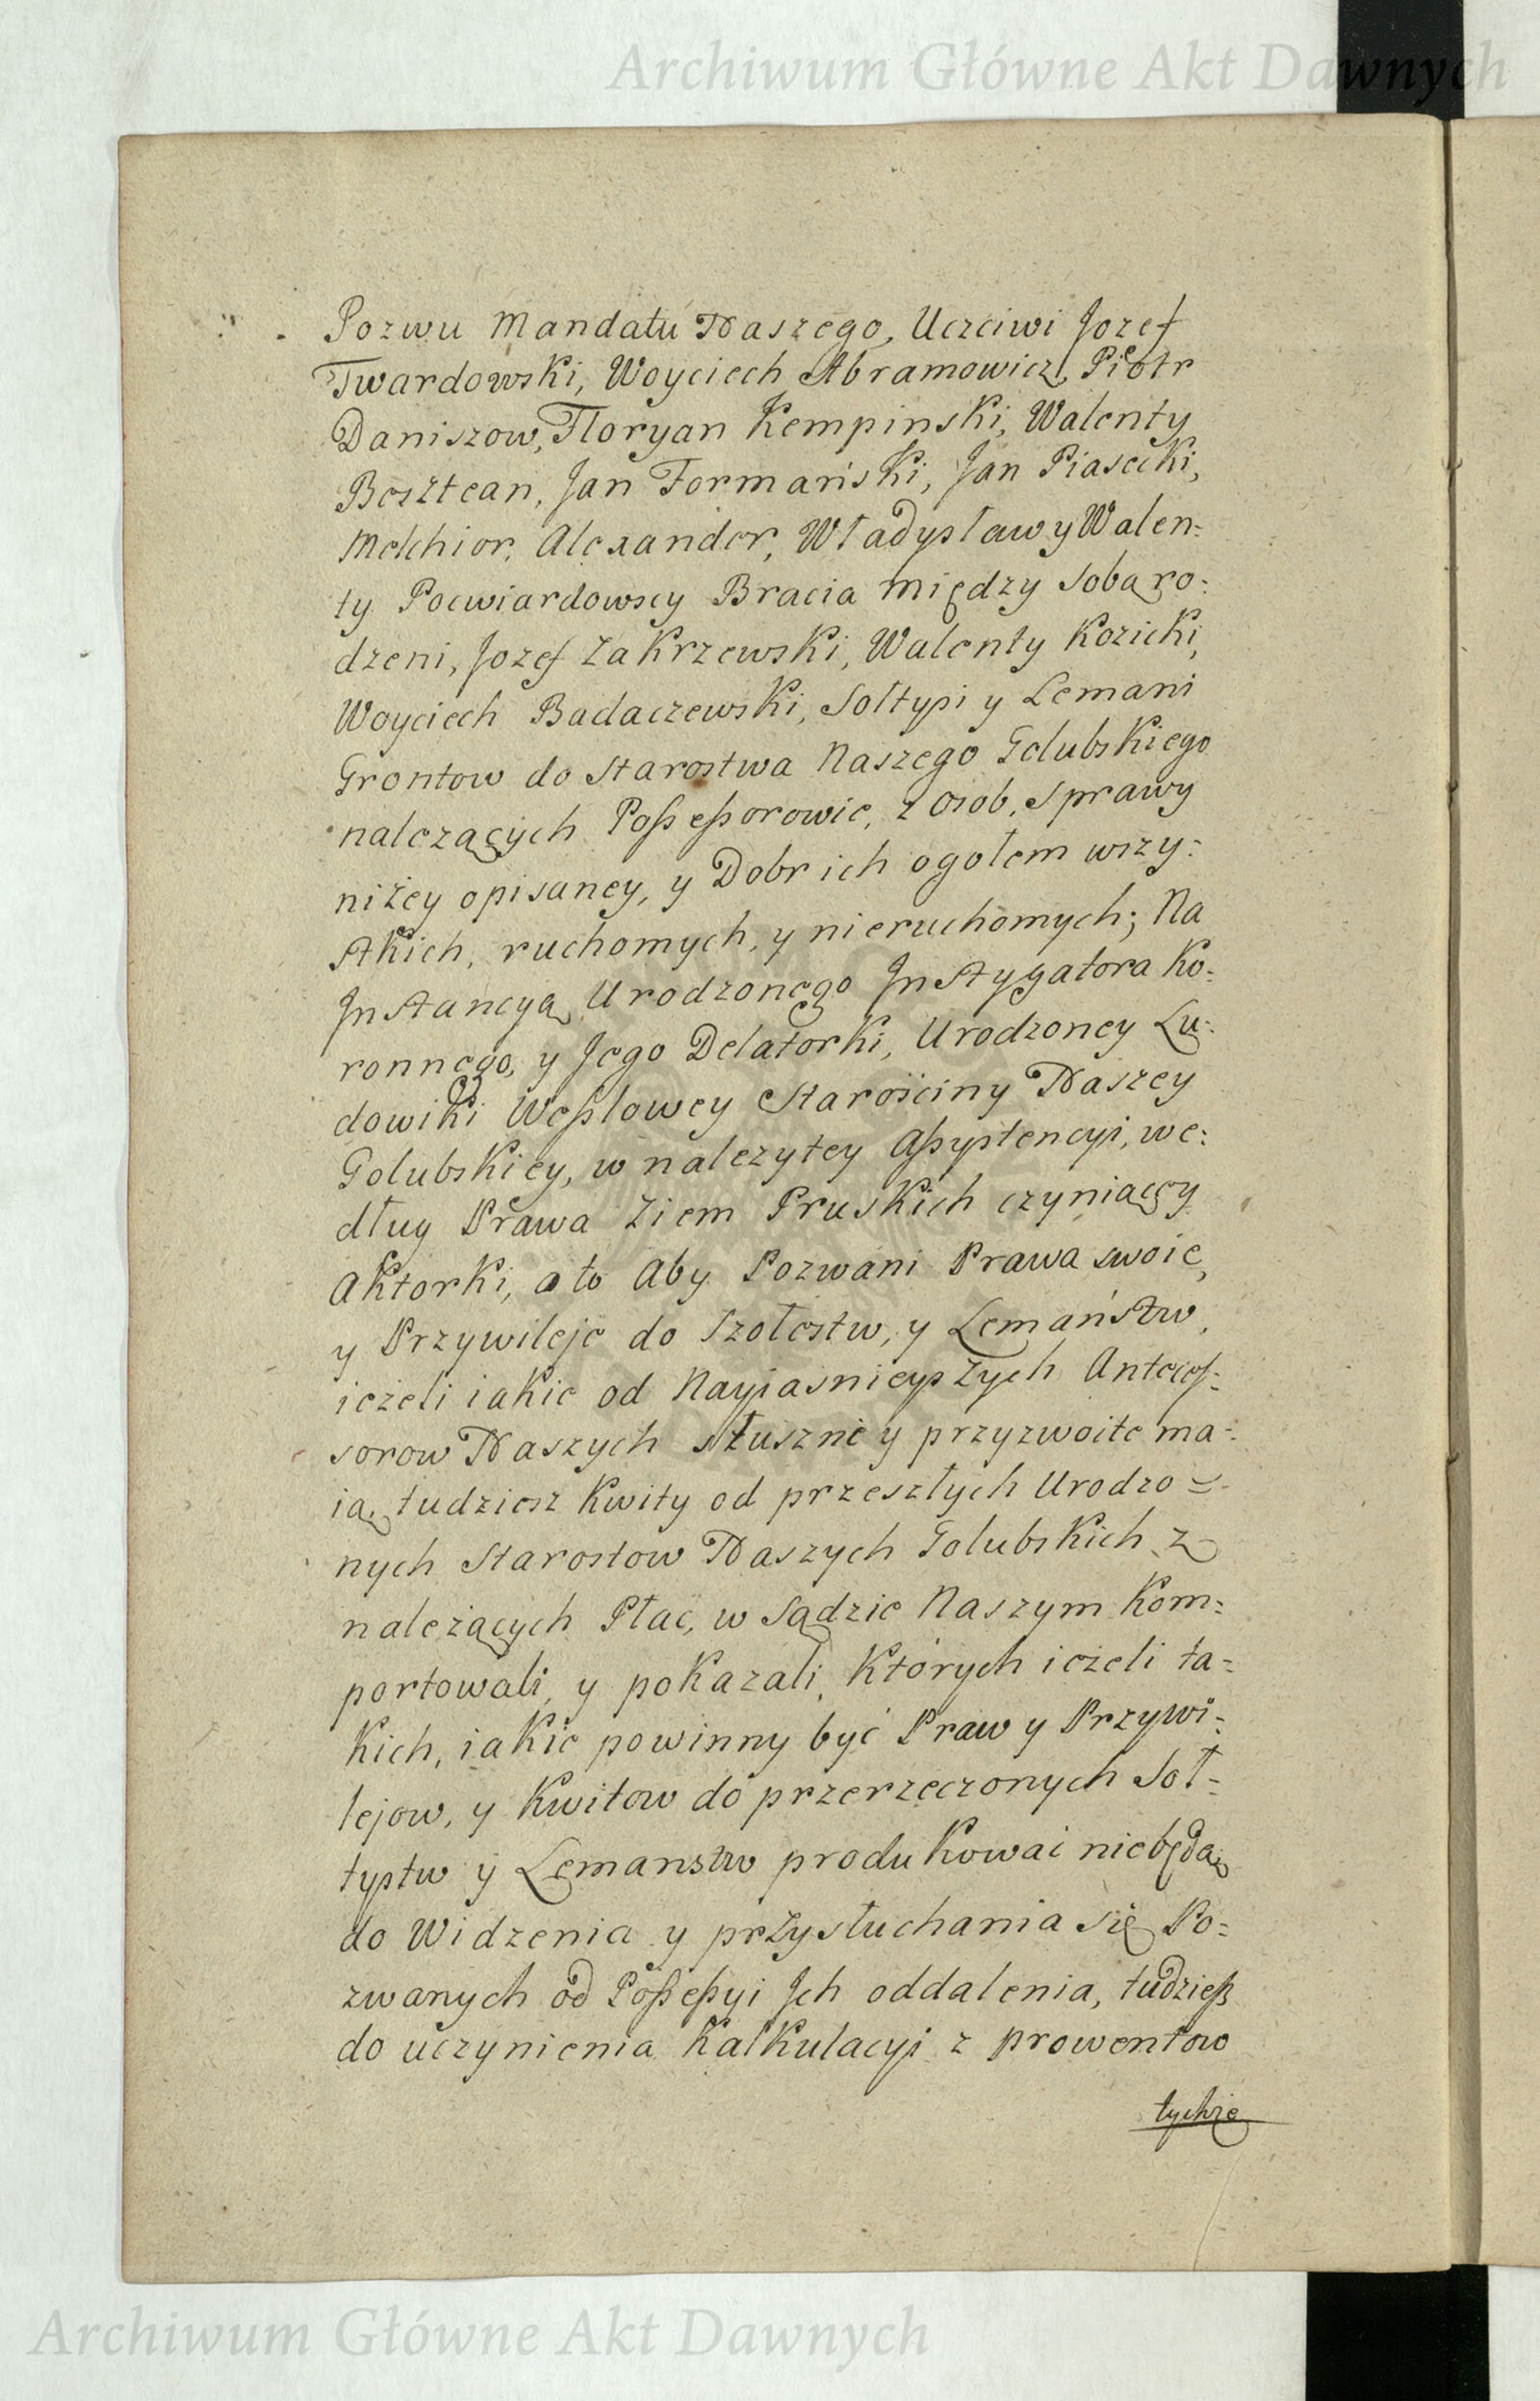 Archiwum Główne Akt Dawnych
Pozwu Mandatu Naszego, Uczciwi Jozef
Twardowski, Woyciech Abramowicz, Piotr
Daniszow, Floryan Kempinski, Walenty
Bosztean, Jan Formański, Jan Piasecki,
Melchior, Alexander, Władysław y Walen=
ty Pocwiardowscy Bracia między sobą ro=
dzeni, Jozef Zakrzewski, Walenty Kozicki,
Woyciech Badaczewski, Sołtysi y Lemani
Grontow do Starostwa Naszego Golubskiego
należących Poßeßorowie, z osob, sprawy
niżey opisaney, y Dobr ich ogołem wszy=
stkich, ruchomych, y nieruchomych; Na
Instancyą Urodzonego Instygatora Ko=
ronnego, y Jego Delatorki, Urodzoney Lu=
dowiki Weßlowey Starościny Naszey
Golubskiey, w nalezytey Aßystencyi, we=
dług Prawa Ziem Pruskich czyniącey
Aktorki, a to Aby Pozwani Prawa swoie,
y Przywileje do Szołestw, y Lemaństw,
ieżeli iakie od Nayiasnieyszych Anteces=
sorow Naszych słusznie y przyzwoite ma=
ią, tudziesz Kwity od przeszłych Urodzo=
nych Starostow Naszych Golubskich z
należących Płac, w Sądzie Naszym Kom=
portowali, y pokazali, Których ieżeli ta=
kich, iakie powinny być Praw y Przywi=
lejow, y Kwitow do przerzeczonych Soł=
tystw y Lemanstw produkować niebędą
do Widzenia y przysłuchania się Po=
zwanych od Poßeßyi Jch oddalenia, tudzieß
do uczynienia Kalkulacyi z prowentow
tychże
Archiwum Główne Akt Dawnych